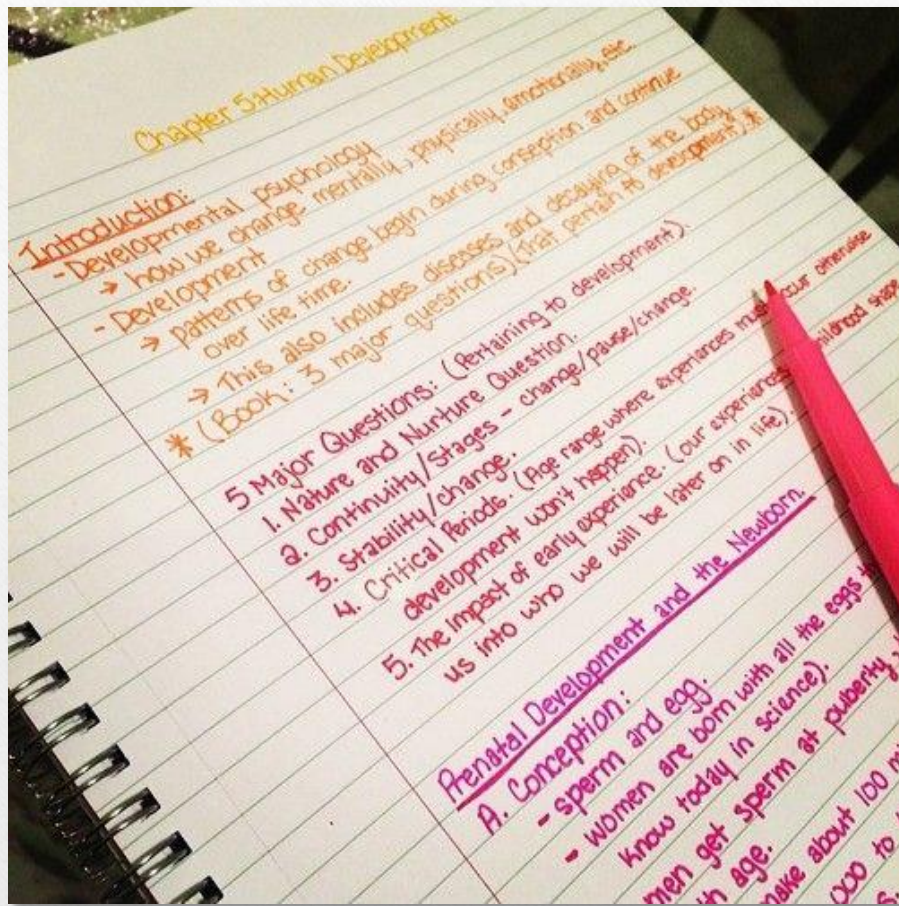 Chapter 5: Human Development
Introduction:
- Developmental psychology
→ how we change mentally, physically, emotionally, etc.
- Development
→ patterns of change begin during conseption and continue
over life time.
→ This also includes diseases and decaying of the body.
* (Book: 3 major questions) (that pertain to development) *
5 Major Questions: (Pertaining to development).
1. Nature and Nurture Question.
2. Continuity/Stages - change/pause/change.
3. Stability/change.
4. Critical Periods. (Age range where experiences must occur otherwise
development won't happen).
5. The impact of early experience. (our experiences shape
us into who we will be later on in life).
Prenatal Development and the Newborn.
A. Conception:
- sperm and egg.
- women are born with all the eggs
know today in science).
men get sperm at puberty,
age.
make about 100
000 to